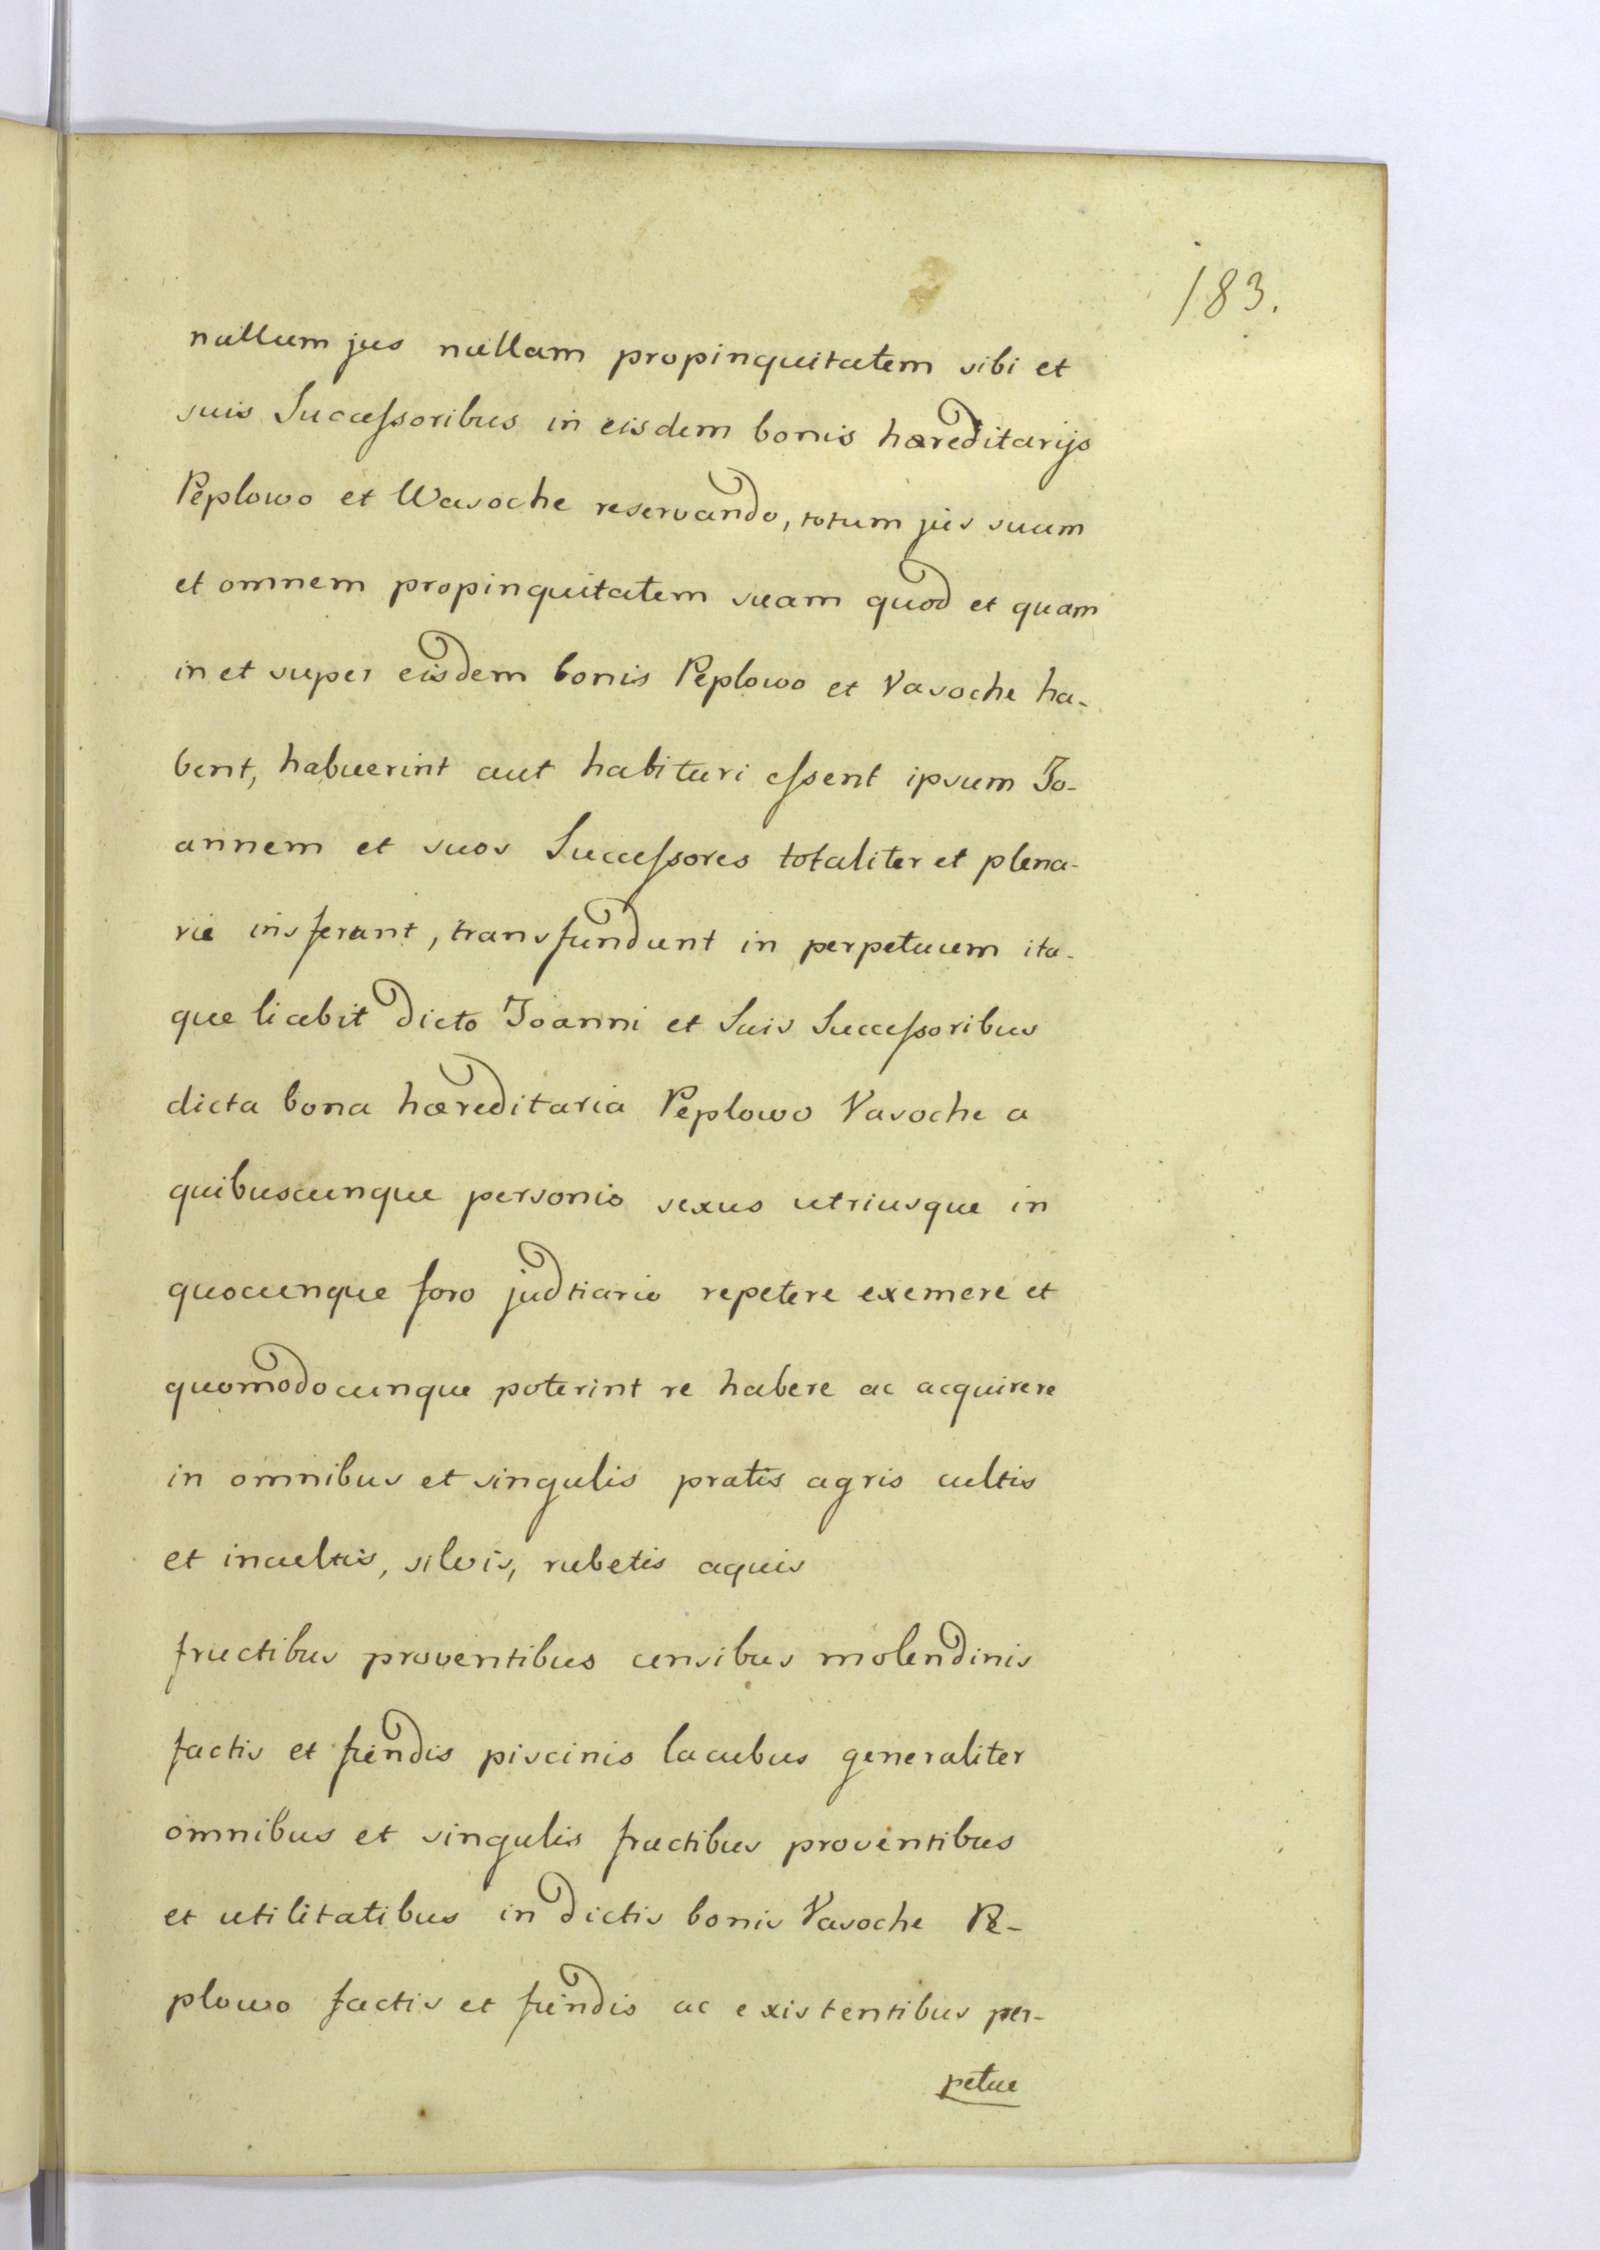 183.
nullum jus nullam propinquitatem sibi et
suis Successoribus in eisdem bonis hæreditarijs
Peplowo et Wasoche reservando, totum jus suum
et omnem propinquitatem suam quod et quam
in et super eisdem bonis Peplowo et Vasoche ha-
bent, habuerint aut habituri essent ipsum Jo-
annem et suos Successores totaliter et plena-
rie insferant, transfundunt in perpetuum ita-
que licebit dicto Joanni et Suis Successoribus
dicta bona hæreditaria Peplowo Vasoche a
quibuscunque personis sexus utriusque in
quocunque foro judtiario repetere exemere et
quomodocunque poterint re habere ac acquirere
in omnibus et singulis pratis agris cultis
et incultis, silvis, rubetis aquis
fructibus proventibus censibus molendinis
factis et fiendis piscinis lacubus generaliter
omnibus et singulis fructibus proventibus
et utilitatibus in dictis bonis Vasoche Pe-
plowo factis et fiendis ac existentibus per-
petue